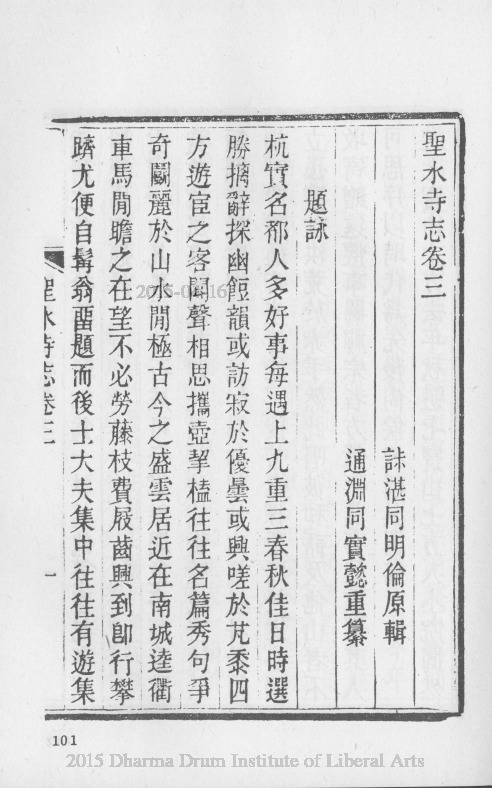 聖水寺志卷三
誄湛同明倫原輯
通淵同實懿重纂
題詠
杭實名郡人多好事每遇上九重三春秋佳日時選
勝摛辭探幽飣韻或訪寂於優曇或興嗟於芃黍四
方遊宦之客聞聲相思攜壺挈榼往往名篇秀句爭
奇鬬麗於山水閒極古今之盛雲居近在南城逵衢
車馬閒瞻之在望不必勞藤枝費屐齒興到卽行攀
躋尤便自髯翁畱題而後士大夫集中往往有遊集
聖水寺志卷三
一
101
2015 Dharma Drum Institute of Liberal Arts